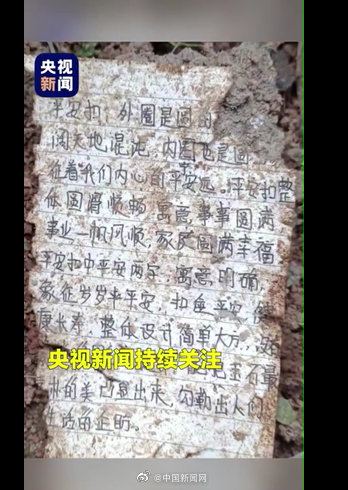 央视
新闻
平安扣:外圈是圆的
阔天地混沌,内圈也是圆
征着我们内心的平安远。平安扣整
体圆滑顺畅寓意,事事圆满
事业一帆风顺,家庭圆满幸福
平安扣中平安两字,寓意明确,
象征岁岁平平安,扣全平安健
康长寿,整体设计简单大方,
央视新闻持续关注
的美凸显出来,勾勒出人们
生活的企盼。
@中国新闻网